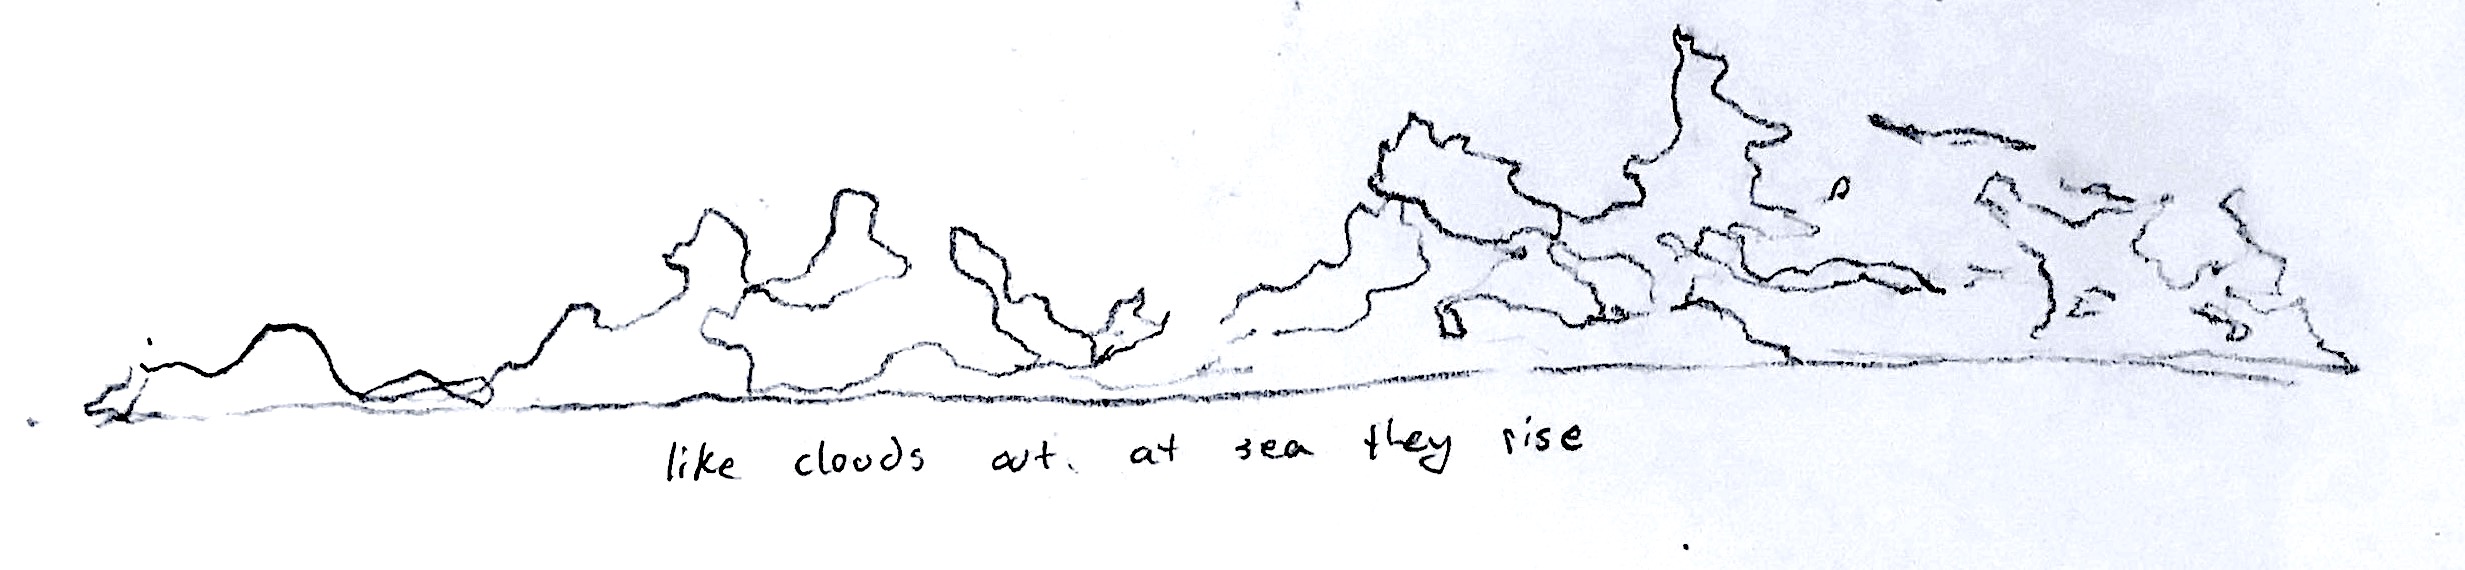 like clouds out. at sea they rise